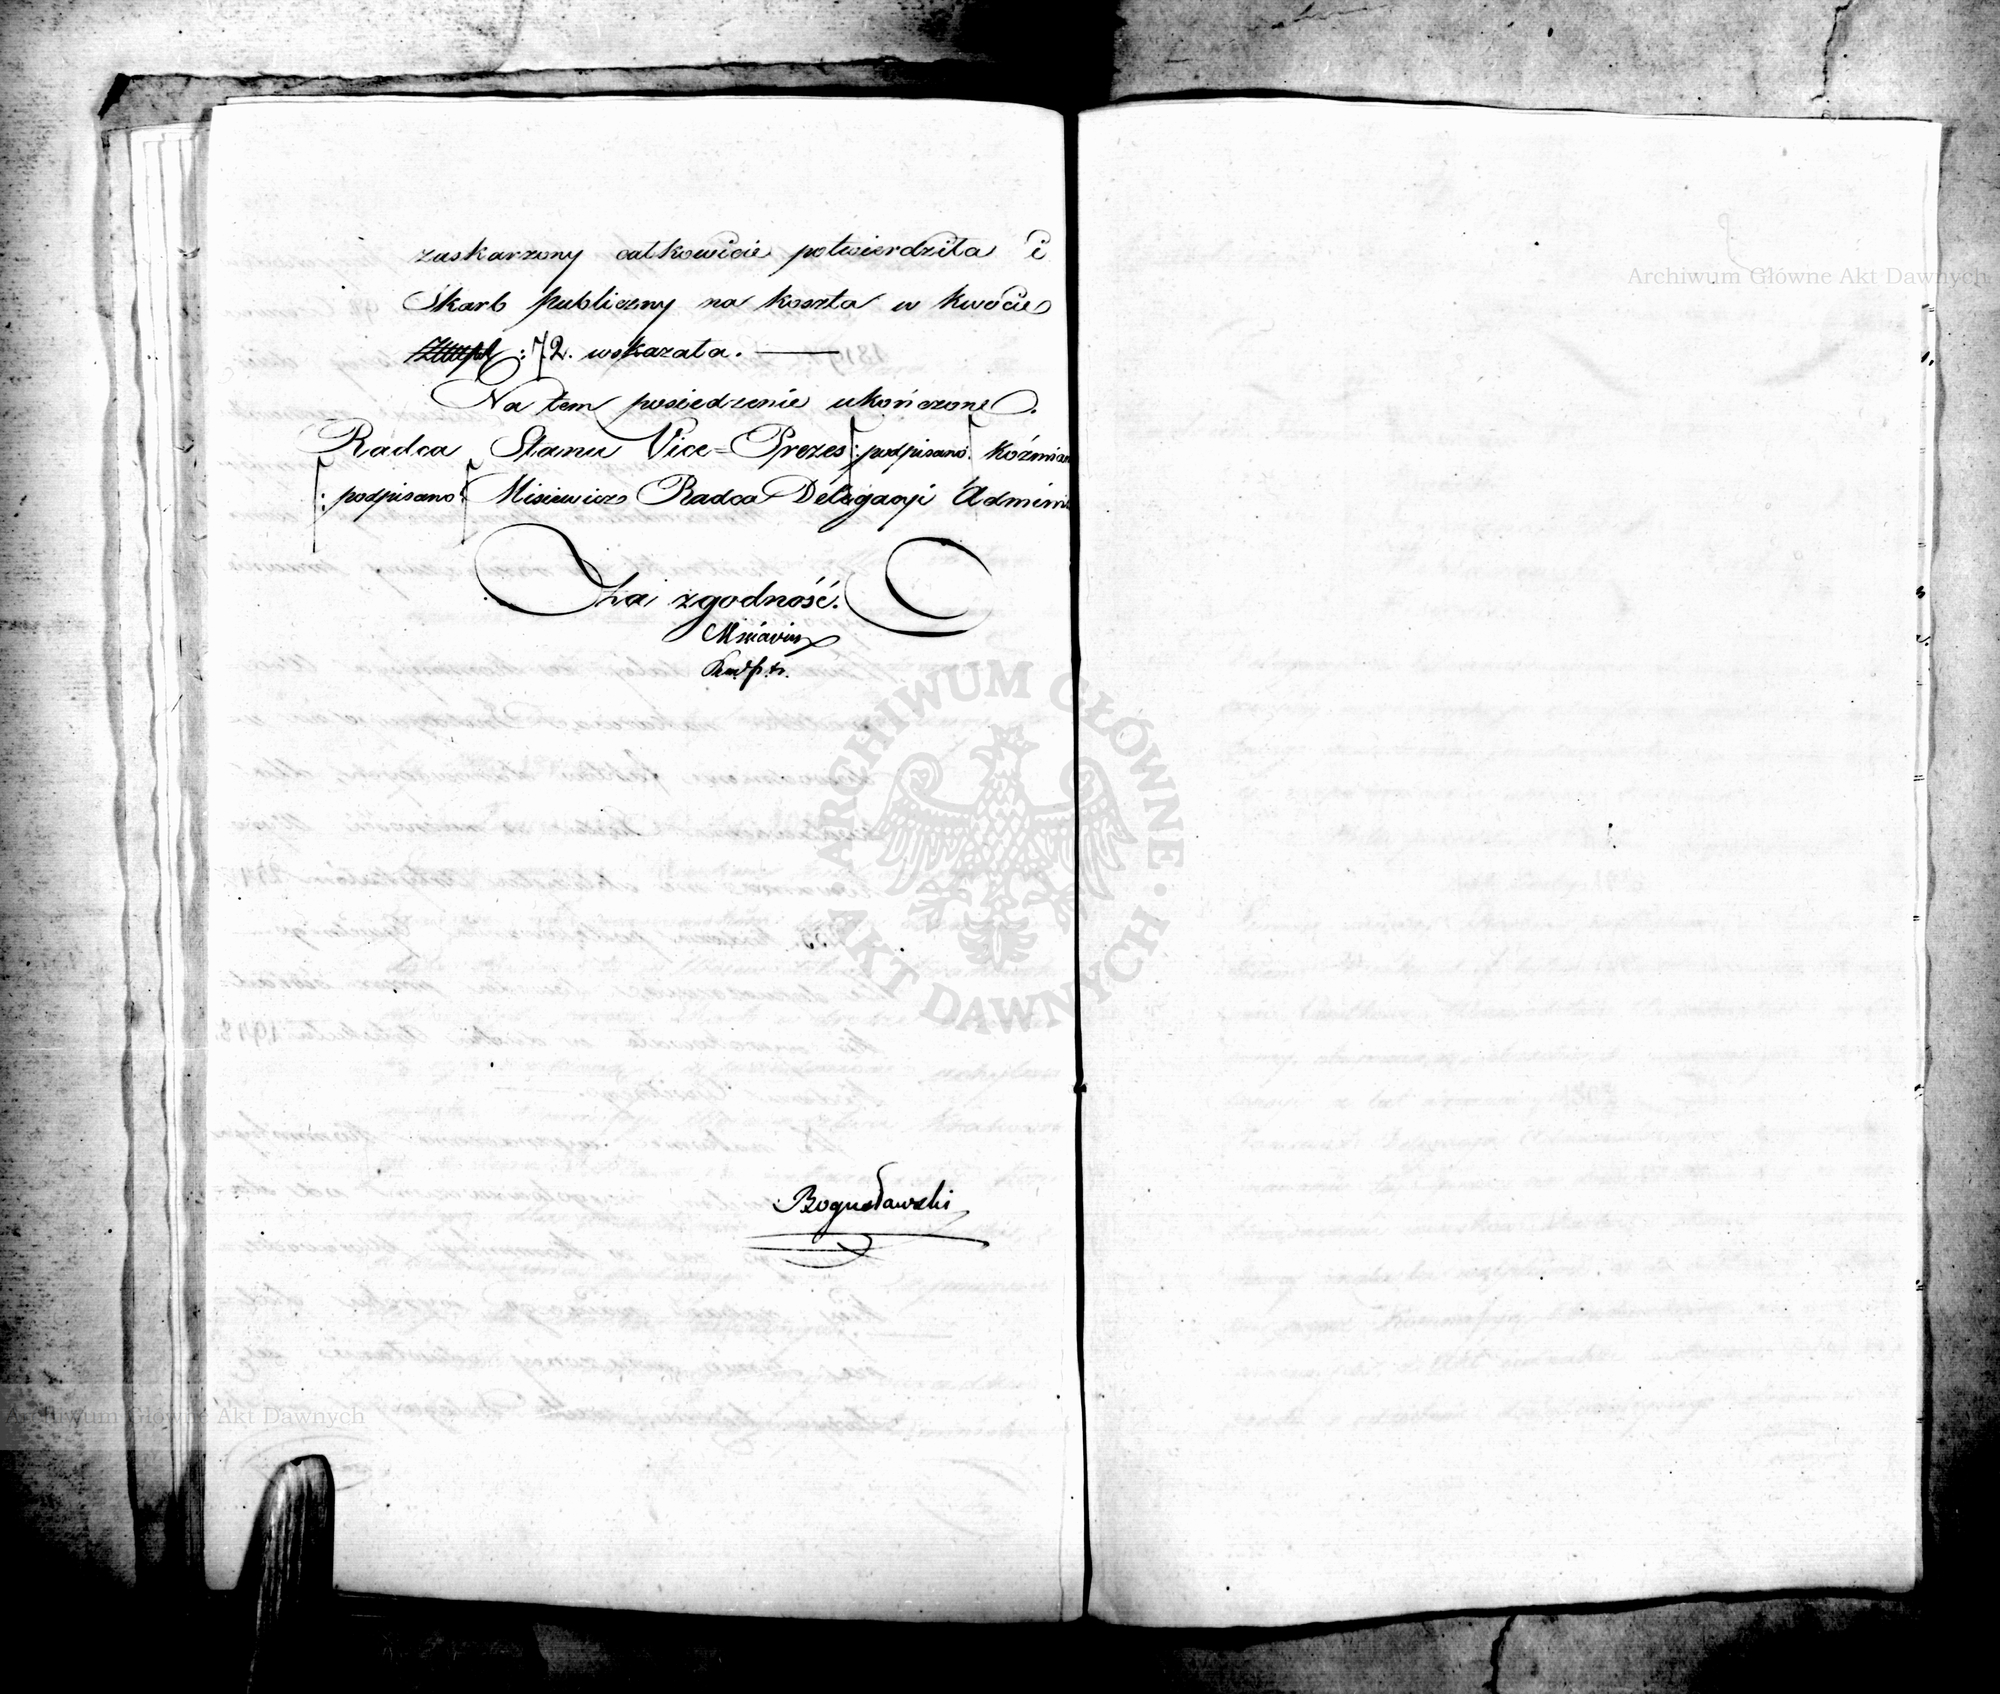 zaskarzony całkowicie potwierdziła i
Skarb publiczny na koszta w kwocie
: 72. wskazała.
Na tem posiedzenie ukończone.
Radca Stanu Vice-Prezes /:podpisano:/ Koźmian
/:podpisano:/ Misiewicz Radca Delegacyi Admini
Za zgodność.
Bogusławski
Archiwum Główne Akt Dawnych
Archiwum Główne Akt Dawnych
ARCHIWUM GŁÓWNE AKT DAWNYCH